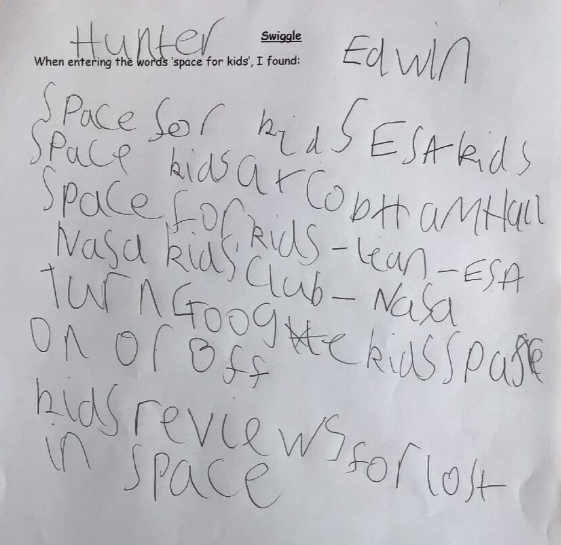 Hunter Swiggle Edwin
When entering the words 'space for kids', I found:
Space for kids ESA kids
Space kids at CobHamHall
Space for kids - lean - ESA
Nasa kids Club - Nasa
turn Google kids space
on or off
kids revcews for lost
in space